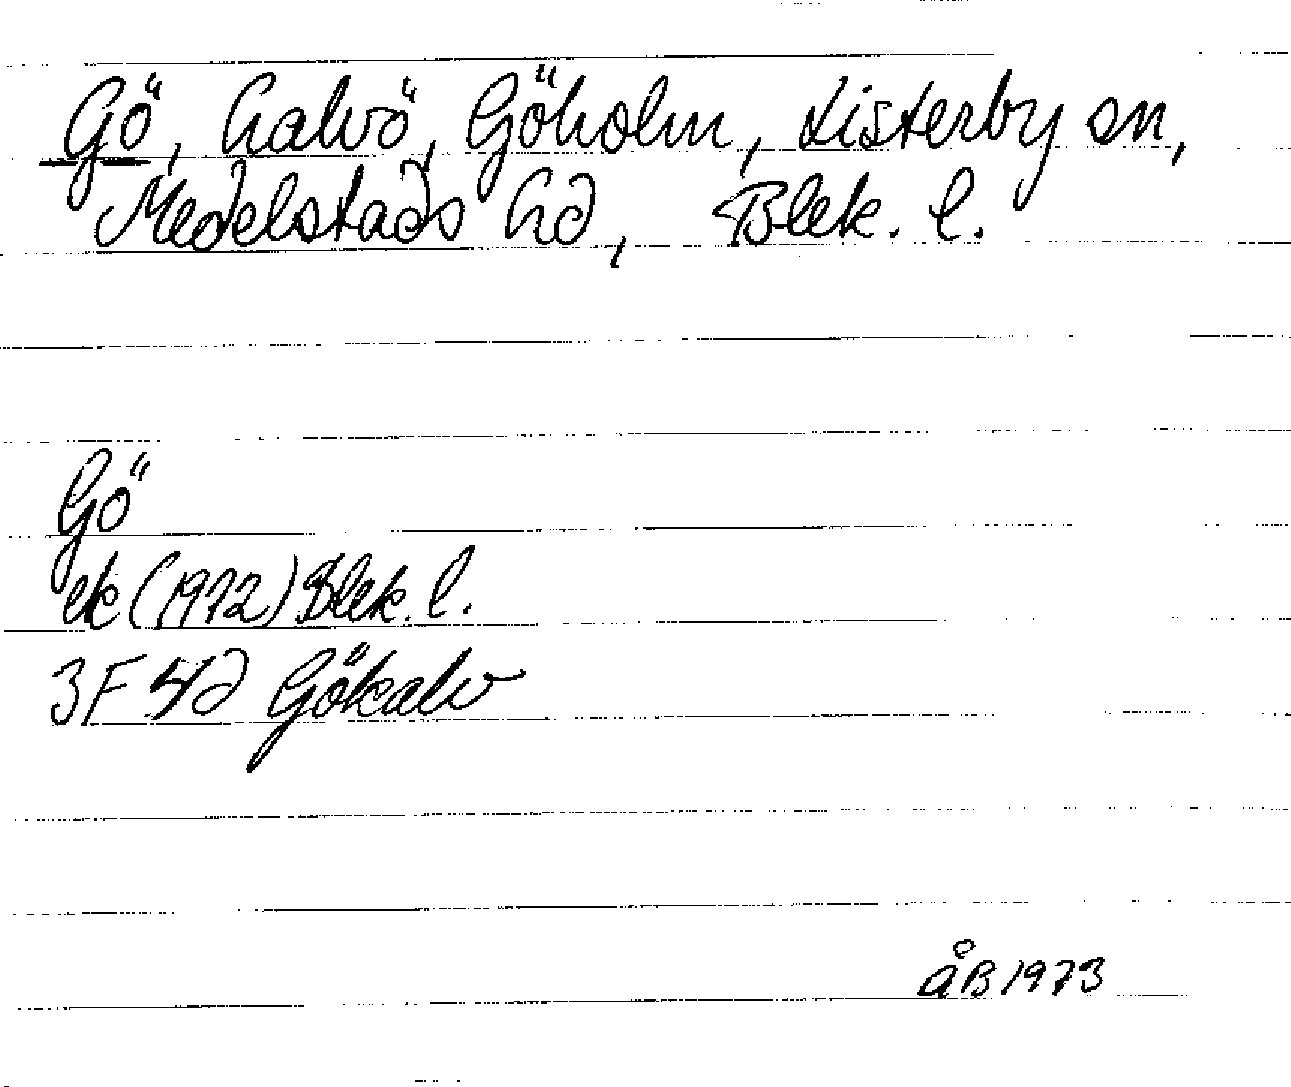 Gö, halvö, Göholm, Listerby sn,
Medelstads hd, Blek. l.
Gö
ek (1972) Blek. l.
3F 4d Gökalv
ÅB 1973